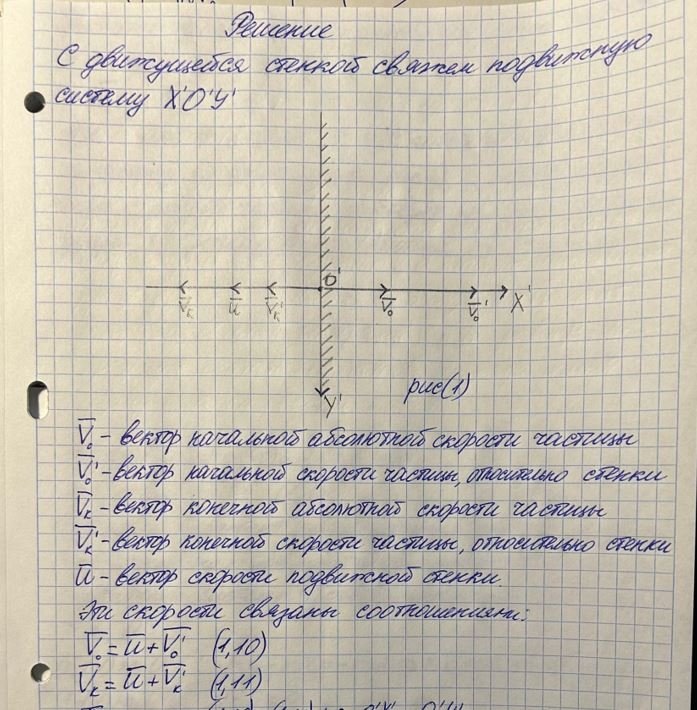 Решение
С движущейся стенкой свяжем подвижную
систему X'O'Y'
O'
V̅ₖ u̅ V̅ₖ' V̅₀ V̅₀' X'
рис(1)
Y'
V̅₀ - вектор начальной абсолютной скорости частицы
V̅₀' - вектор начальной скорости частицы, относительно стенки
V̅ₖ - вектор конечной абсолютной скорости частицы
V̅ₖ' - вектор конечной скорости частицы, относительно стенки
u̅ - вектор скорости подвижной стенки.
Эти скорости связаны соотношениями:
V̅₀ = u̅ + V̅₀' (1,10)
V̅ₖ = u̅ + V̅ₖ' (1,11)